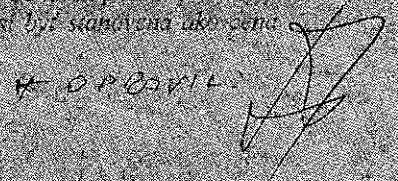 byť stanovená ako cena
* OPRAVIL: